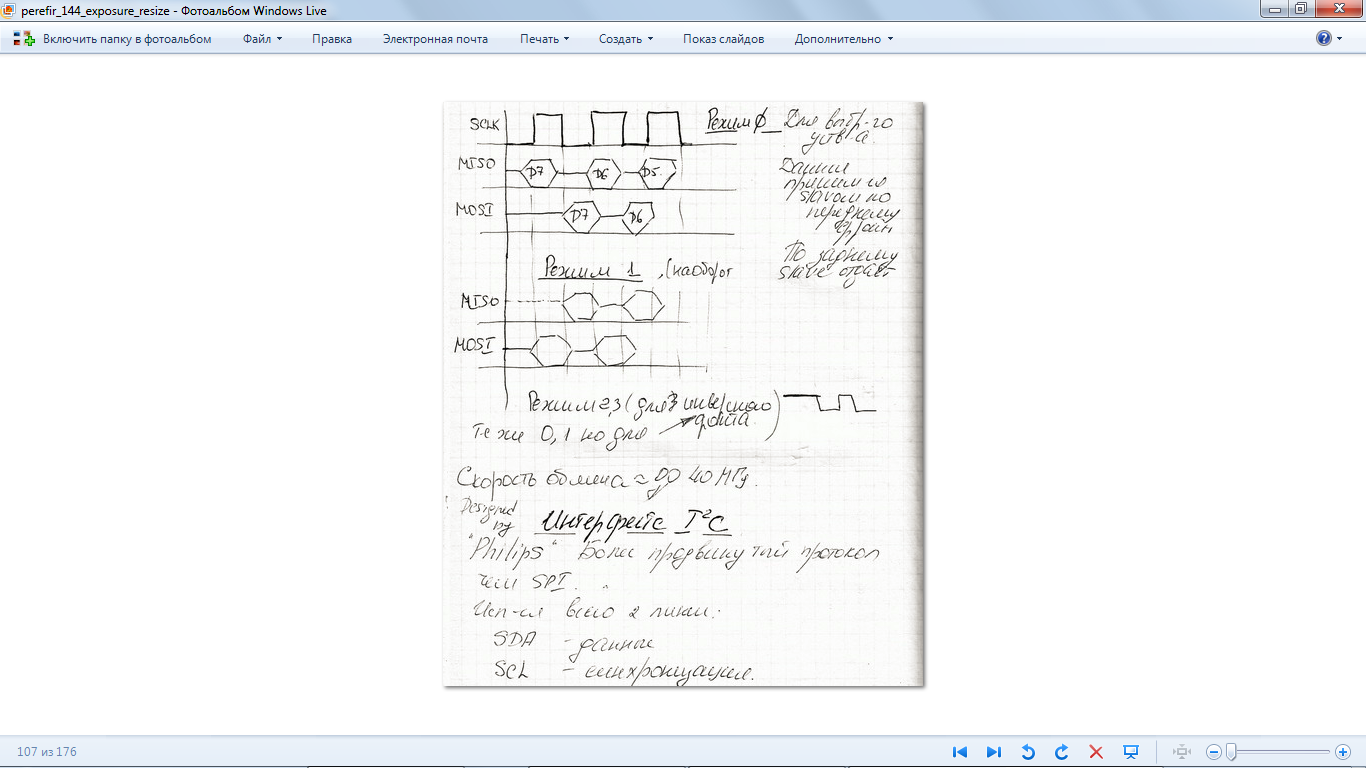 perefir_144_exposure_resize - Фотоальбом Windows Live
Включить папку в фотоальбом Файл Правка Электронная почта Печать Создать Показ слайдов Дополнительно
SCLK
Режим 0 Для выбр-го
устр-ва.
MISO D7 D6 D5
Данные
приним-ся
slaveом по
переднему
фронт
MOSI D7 D6
По заднему
slave отдаёт
Режим 1, (наоборот
MISO
MOSI
Режим 2,3 (для инверсного
фронта)
Те же 0,1 но для
Скорость обмена ≈ до 40 МГц.
Designed
by
Интерфейс I²C
"Philips" Более продвинутый протокол
чем SPI.
Исп-ся всего 2 линии:
SDA - данные
SCL - синхронизация.
107 из 176